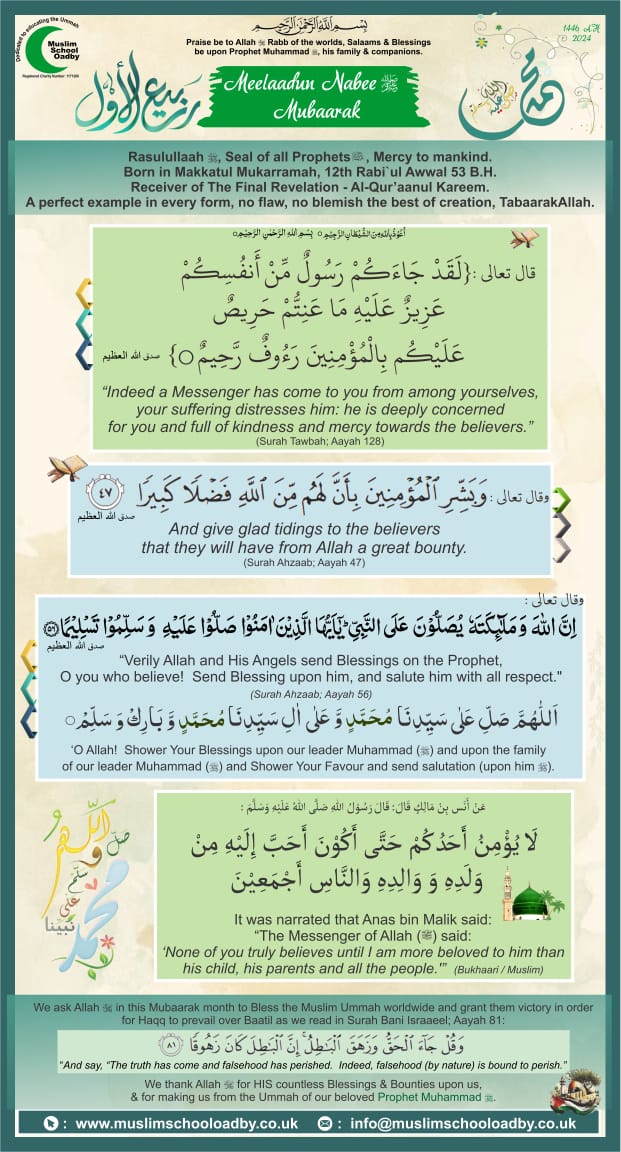 Dedicated to educating the Ummah
Muslim
School
Oadby
Registered Charity Number: 1171280
بِسْمِ اللهِ الرَّحْمٰنِ الرَّحِيْمِ
Praise be to Allah ﷻ Rabb of the worlds, Salaams & Blessings
be upon Prophet Muhammad ﷺ, his family & companions.
1446 A.H
2024
ربيع الأول
Meelaadun Nabee ﷺ
Mubaarak
محمد
Rasulullaah ﷺ, Seal of all Prophets, Mercy to mankind.
Born in Makkatul Mukarramah, 12th Rabi`ul Awwal 53 B.H.
Receiver of The Final Revelation - Al-Qur’aanul Kareem.
A perfect example in every form, no flaw, no blemish the best of creation, TabaarakAllah.
أَعُوْذُ بِاللهِ مِنَ الشَّيْطَانِ الرَّجِيْمِ ○ بِسْمِ اللهِ الرَّحْمٰنِ الرَّحِيْمِ ○
قال تعالى :{لَقَدْ جَاءَكُمْ رَسُولٌ مِّنْ أَنفُسِكُمْ
عَزِيزٌ عَلَيْهِ مَا عَنِتُّمْ حَرِيصٌ
عَلَيْكُم بِالْمُؤْمِنِينَ رَءُوفٌ رَّحِيمٌ ○} صدق الله العظيم
“Indeed a Messenger has come to you from among yourselves,
your suffering distresses him: he is deeply concerned
for you and full of kindness and mercy towards the believers.”
(Surah Tawbah; Aayah 128)
وقال تعالى : وَبَشِّرِ الْمُؤْمِنِينَ بِأَنَّ لَهُم مِّنَ اللَّهِ فَضْلًا كَبِيرًا ٤٧
صدق الله العظيم
And give glad tidings to the believers
that they will have from Allah a great bounty.
(Surah Ahzaab; Aayah 47)
وقال تعالى :
اِنَّ اللّٰهَ وَمَلٰٓئِكَتَهٗ يُصَلُّوْنَ عَلَى النَّبِيِّ ؕ يٰٓاَيُّهَا الَّذِيْنَ اٰمَنُوْا صَلُّوْا عَلَيْهِ وَسَلِّمُوْا تَسْلِيْمًا ٥٦
صدق الله العظيم
“Verily Allah and His Angels send Blessings on the Prophet,
O you who believe! Send Blessing upon him, and salute him with all respect."
(Surah Ahzaab; Aayah 56)
اَللّٰهُمَّ صَلِّ عَلٰى سَيِّدِنَا مُحَمَّدٍ وَّ عَلٰى اٰلِ سَيِّدِنَا مُحَمَّدٍ وَّ بَارِكْ وَ سَلِّمْ ○
‘O Allah! Shower Your Blessings upon our leader Muhammad (ﷺ) and upon the family
of our leader Muhammad (ﷺ) and Shower Your Favour and send salutation (upon him ﷺ).
اللهم
صل
وسلم
على
نبينا
محمد
عَنْ أَنَسِ بْنِ مَالِكٍ قَالَ: قَالَ رَسُوْلُ اللهِ صَلَّى اللهُ عَلَيْهِ وَسَلَّمَ :
لَا يُؤْمِنُ أَحَدُكُمْ حَتَّى أَكُوْنَ أَحَبَّ إِلَيْهِ مِنْ
وَلَدِهِ وَ وَالِدِهِ وَالنَّاسِ أَجْمَعِيْنَ
It was narrated that Anas bin Malik said:
“The Messenger of Allah (ﷺ) said:
‘None of you truly believes until I am more beloved to him than
his child, his parents and all the people.'” (Bukhaari / Muslim)
We ask Allah ﷻ in this Mubaarak month to Bless the Muslim Ummah worldwide and grant them victory in order
for Haqq to prevail over Baatil as we read in Surah Bani Israaeel; Aayah 81:
وَقُلْ جَاءَ الْحَقُّ وَزَهَقَ الْبَاطِلُ ۚ إِنَّ الْبَاطِلَ كَانَ زَهُوقًا ٨١
“And say, “The truth has come and falsehood has perished. Indeed, falsehood (by nature) is bound to perish.”
We thank Allah ﷻ for HIS countless Blessings & Bounties upon us,
& for making us from the Ummah of our beloved Prophet Muhammad ﷺ.
: www.muslimschooloadby.co.uk : info@muslimschooloadby.co.uk